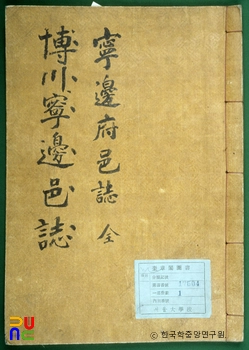 博川寧邊邑誌
寧邊府邑誌 全
ⓒ 한국학중앙연구원